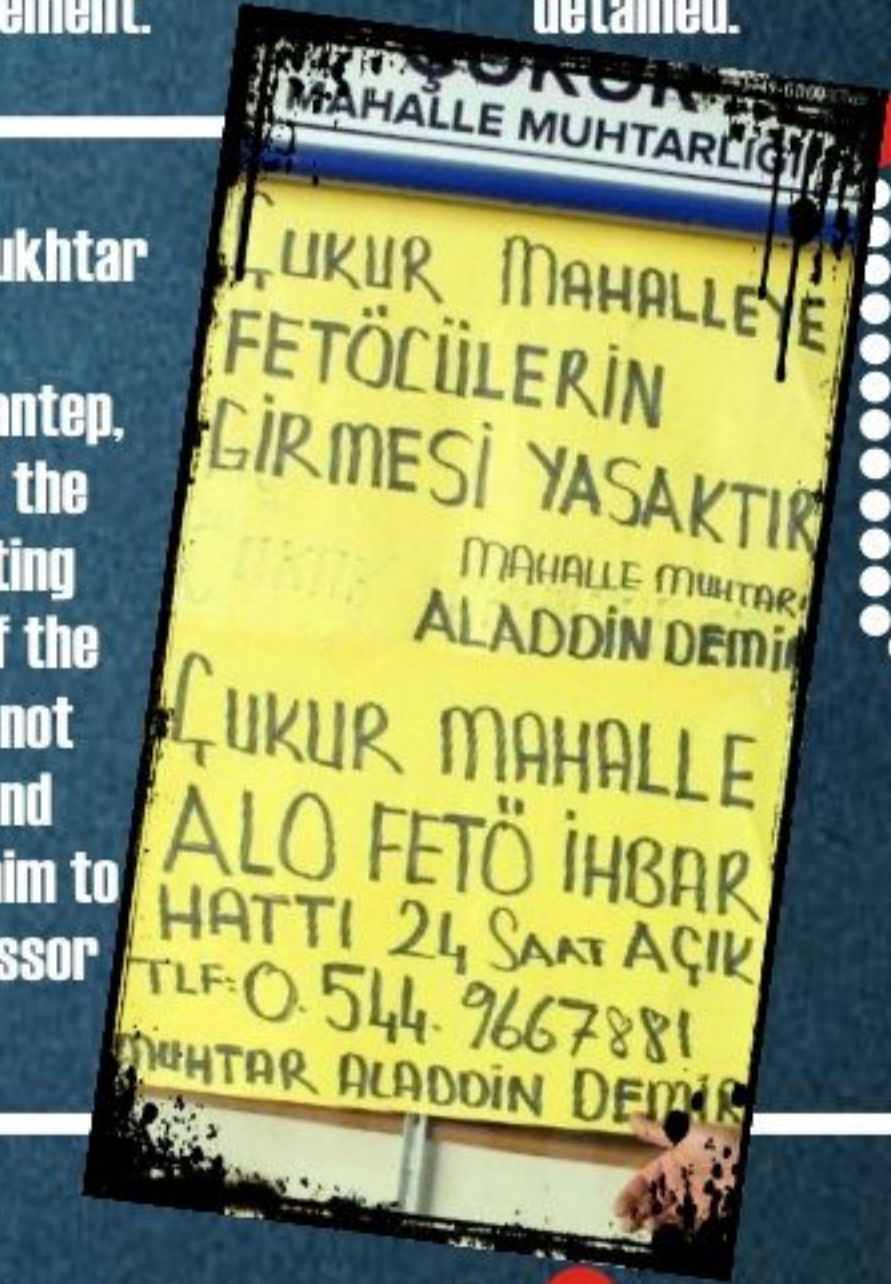 detained.
ukhtar
antep,
the
ting
f the
not
nd
him to
ssor
ÇUKUR
MAHALLE MUHTARLIĞI
ÇUKUR MAHALLEYE
FETÖCÜLERİN
GİRMESİ YASAKTIR
MAHALLE MUHTARI
ALADDİN DEMİR
ÇUKUR MAHALLE
ALO FETÖ İHBAR
HATTI 24 SAAT AÇIK
TLF: 0.544.9667881
MUHTAR ALADDİN DEMİR